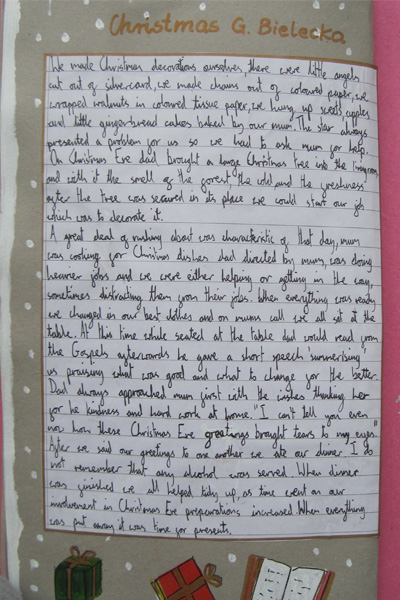 Christmas G. Bielecka
We made Christmas decorations ourselves, there were little angels
cut out of silvercard, we made chains out of coloured paper, we
wrapped walnuts in coloured tissue paper, we hung up sweets, apples
and little gingerbread cakes baked by our mum. The star always
presented a problem for us so we had to ask mum for help.
On Christmas Eve dad brought a large Christmas tree into the livingroom
and with it the smell of the forest, the cold and the freshness
after the tree was secured in its place we could start our job
which was to decorate it.
A great deal of rushing about was characteristic of that day, mum
was cooking for Christmas dishes dad directed by mum, was doing
heavier jobs and we were either helping or getting in the way,
sometimes distracting them from their jobs. When everything was ready
we changed in our best clothes and on mums call we all sat at the
table. At this time while seated at the table dad would read from
the Gospels afterwords he gave a short speech 'summerising'
us praising what was good and what to change for the better.
Dad always approached mum first with the wishes thanking her
for he kindness and hard work at home. "I can't tell you even
now how these Christmas Eve greetings brought tears to my eyes."
After we said our greetings to one another we ate our dinner I do
not remember that any alcohol was served. When dinner
was finished we all helped tidy up, as time went on our
involvement in Christmas Eve preparations increased. When everything
was put away it was time for presents.